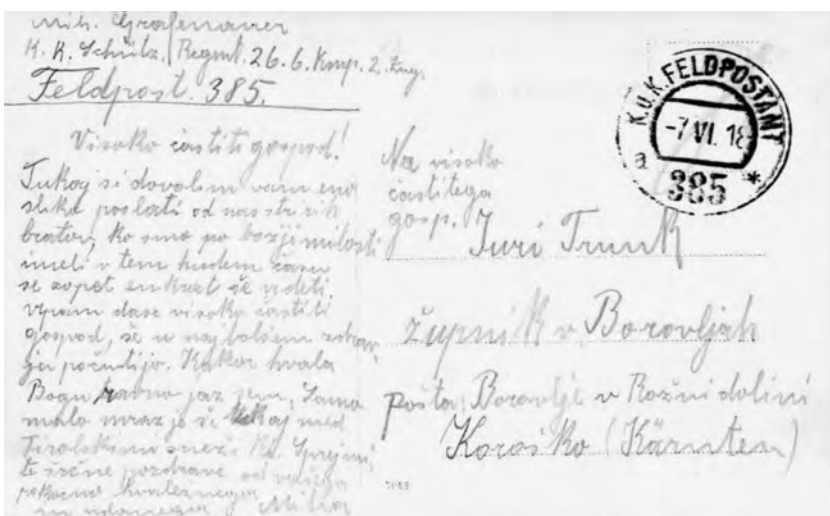 Mih. Grafenauer
K. K. Schütz. Regmt. 26. 6. Kmp. 2. Zug.
Feldpost. 385.
Visoko častiti gospod!
Tukaj si dovolim vam eno
sliko poslati od nas trijih
bratov, ko smo po božji milosti
imeli v tem hudem času
se zopet enkrat še videti.
vpam dase visoko častiti
gospod, še u najbolšem zdrav-
ju počutijo. Kakor hvala
Bogu ravno jaz sem, Samo
malo mraz je še tukaj med
Tirolskimi sneži. Sprejmi-
te srčne pozdrave od vašega
hvaležnega
in udanega Miha
Na visoko
častitega
gosp. Juri Trunk
župnik v Borovljah
pošta: Borovlje v Rožni dolini
Koroško (Kärnten)
K.U.K. FELDPOSTAMT
-7 VI. 18
a 385 *